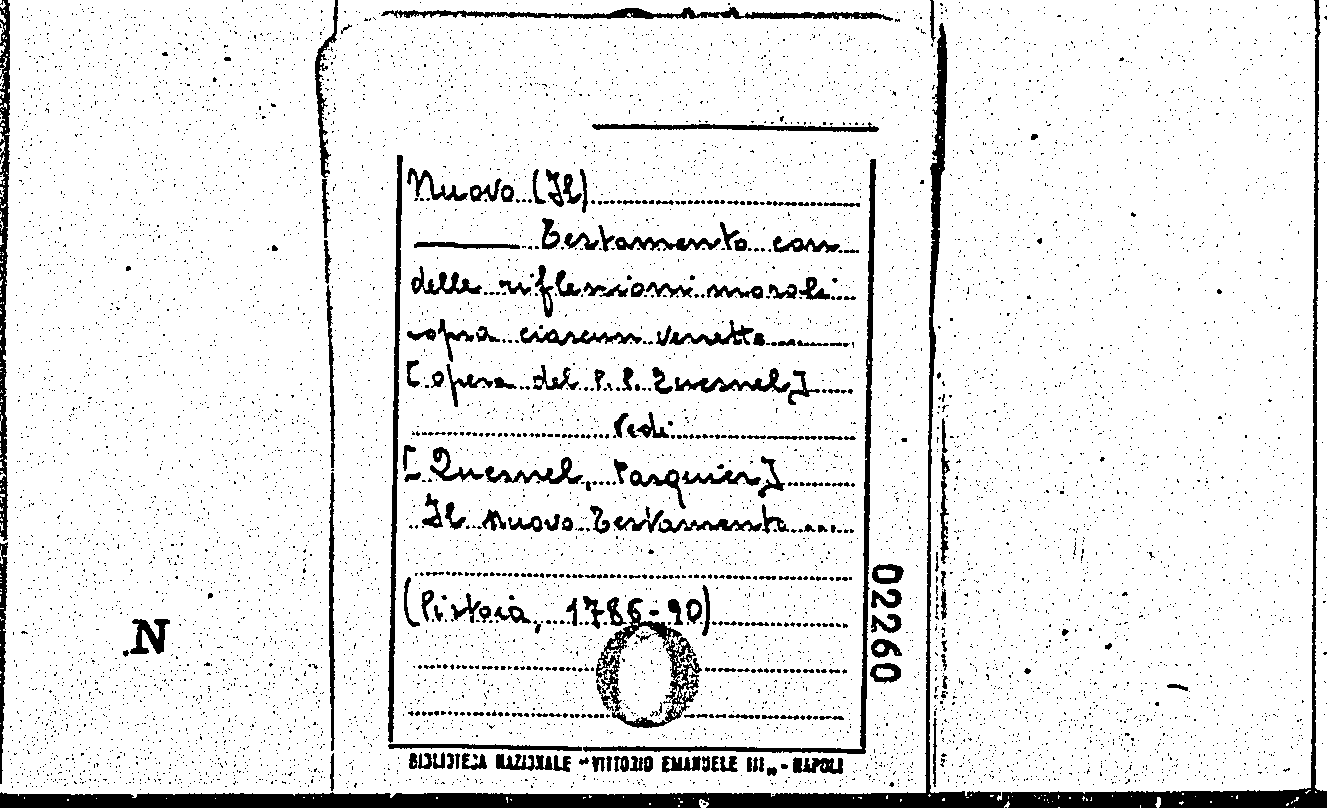 Nuovo (Il)
Testamento con
delle riflessioni morali
sopra ciascun versetto ....
[opera del P. P. Quesnel]
Vedi
[Quesnel, Pasquier]
Il Nuovo Testamento ...
(Pistoia, 1786-90)
BIBLIOTECA NAZIONALE "VITTORIO EMANUELE III„ - NAPOLI
02260
N